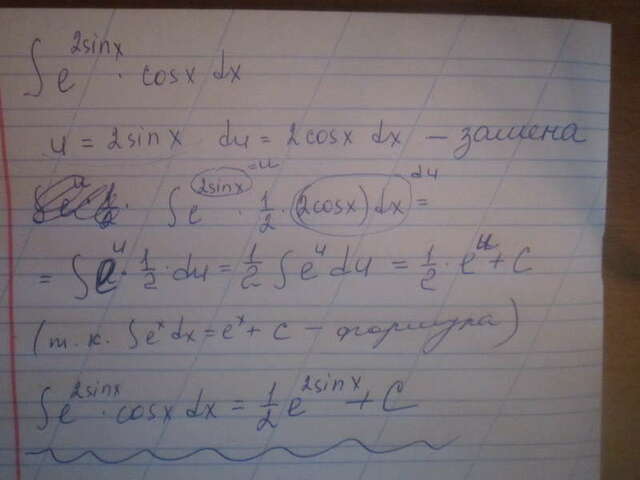 ∫ e^{2sinx} · cosx dx
u = 2sinx   du = 2cosx dx — замена
∫ e^{2sinx = u} · 1/2 · (2cosx) dx^{du} =
= ∫ e^u · 1/2 · du = 1/2 ∫ e^u du = 1/2 · e^u + C
(т.к. ∫ e^x dx = e^x + C — формула)
∫ e^{2sinx} · cosx dx = 1/2 e^{2sinx} + C